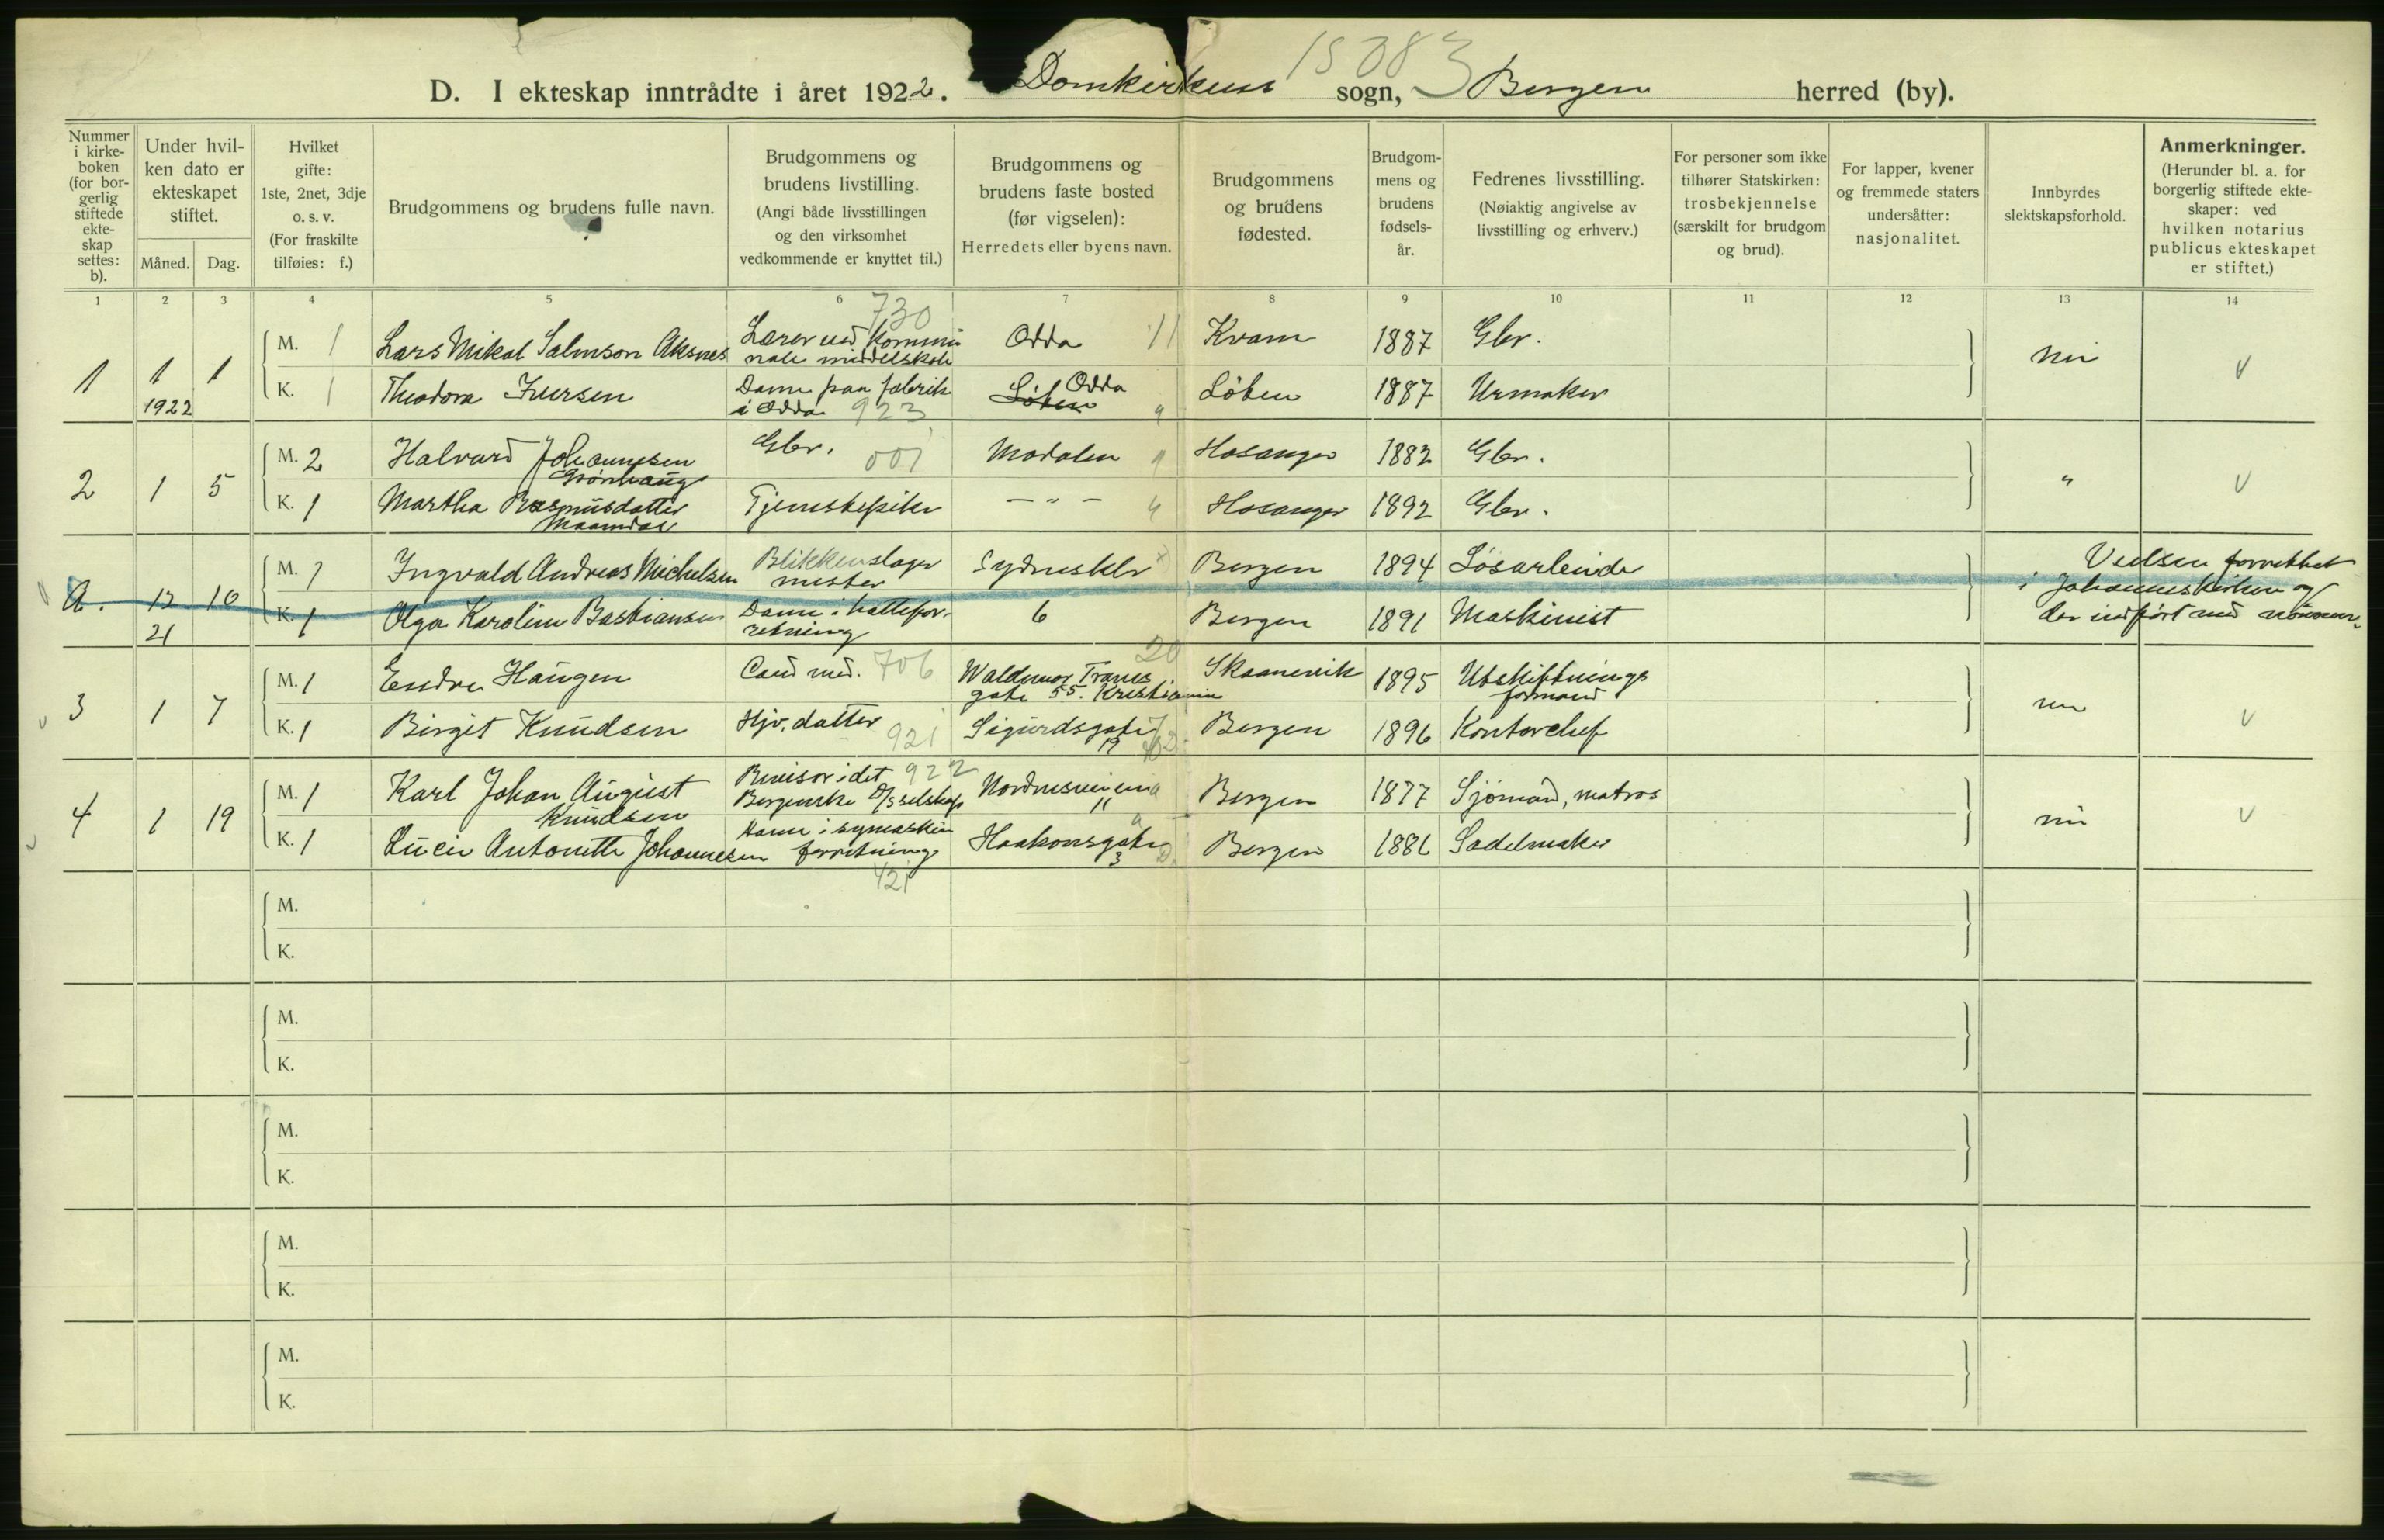 15083
D. I ekteskap inntrådte i året 1922. Domkirkens sogn, Bergen herred (by).
Nummer i kirkeboken (for borgerlig stiftede ekteskap settes: b).
Under hvilken dato er ekteskapet stiftet.
Måned. Dag.
Hvilket gifte: 1ste, 2net, 3dje o. s. v. (For fraskilte tilføies: f.)
Brudgommens og brudens fulle navn.
Brudgommens og brudens livstilling. (Angi både livsstillingen og den virksomhet vedkommende er knyttet til.)
Brudgommens og brudens faste bosted (før vigselen): Herredets eller byens navn.
Brudgommens og brudens fødested.
Brudgommens og brudens fødselsår.
Fedrenes livsstilling. (Nøiaktig angivelse av livsstilling og erhverv.)
For personer som ikke tilhører Statskirken: trosbekjennelse (særskilt for brudgom og brud).
For lapper, kvener og fremmede staters undersåtter: nasjonalitet.
Innbyrdes slektskapsforhold.
Anmerkninger. (Herunder bl. a. for borgerlig stiftede ekteskaper: ved hvilken notarius publicus ekteskapet er stiftet.)
1 2 3 4 5 6 7 8 9 10 11 12 13 14
730
1 1 1 M. 1 Lars Mikal Salmson Aksnes Lærer ved kommunale middelskole Odda 11 Kvam 1887 Gbr. nei V
1922 K. 1 Theodora Iversen Dame paa fabrik i Odda 923 Løten Odda Løten 1887 Urmaker
2 1 5 M. 2 Halvard Johannesen Grønhaug Gbr. 001 Modalen Hosanger 1882 Gbr. " V
K. 1 Martha Rasmusdatter Tjenestepike — " — Hosanger 1892 Gbr.
a. 12 10 M. 1 Ingvald Andreas Michelsen Blikkenslager mester Sydneskl Bergen 1894 Løsarbeide Vielsen forrettet
21 K. 1 Olga Karoline Bastiansen Dame i hatteforretning 6 Bergen 1891 Maskinist i Johanneskirken og der indført med nummer.
3 1 7 M. 1 Endre Haugen Cand med. 706 Waldemar Tranes gate 55. Kristiania 20 Skaanevik 1895 Utskiftningsformand nei V
K. 1 Birgit Knudsen Hjv. datter 921 Sigurdsgate 19 Bergen 1896 Kontorchef
4 1 19 M. 1 Karl Johan August Knudsen Revisor i det Bergenske D/s selskap 922 Nordnesveien 11 Bergen 1877 Sjømand, matros nei V
K. 1 Lucie Antonette Johannesen Dame i symaskin forretning 421 Haakonsgate 3 Bergen 1881 Sadelmaker
M.
K.
M.
K.
M.
K.
M.
K.
M.
K.